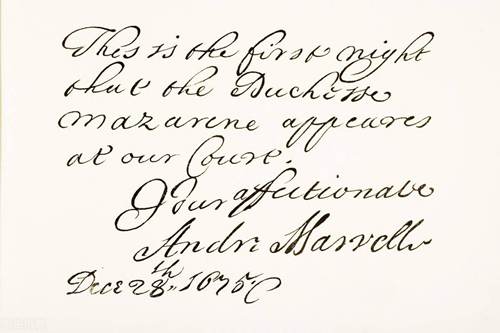 This is the first night
that the Duchesse
Mazarene appeares
at our Court.
Your affectionate
Andr: Marvell
Dece 28th. 1675